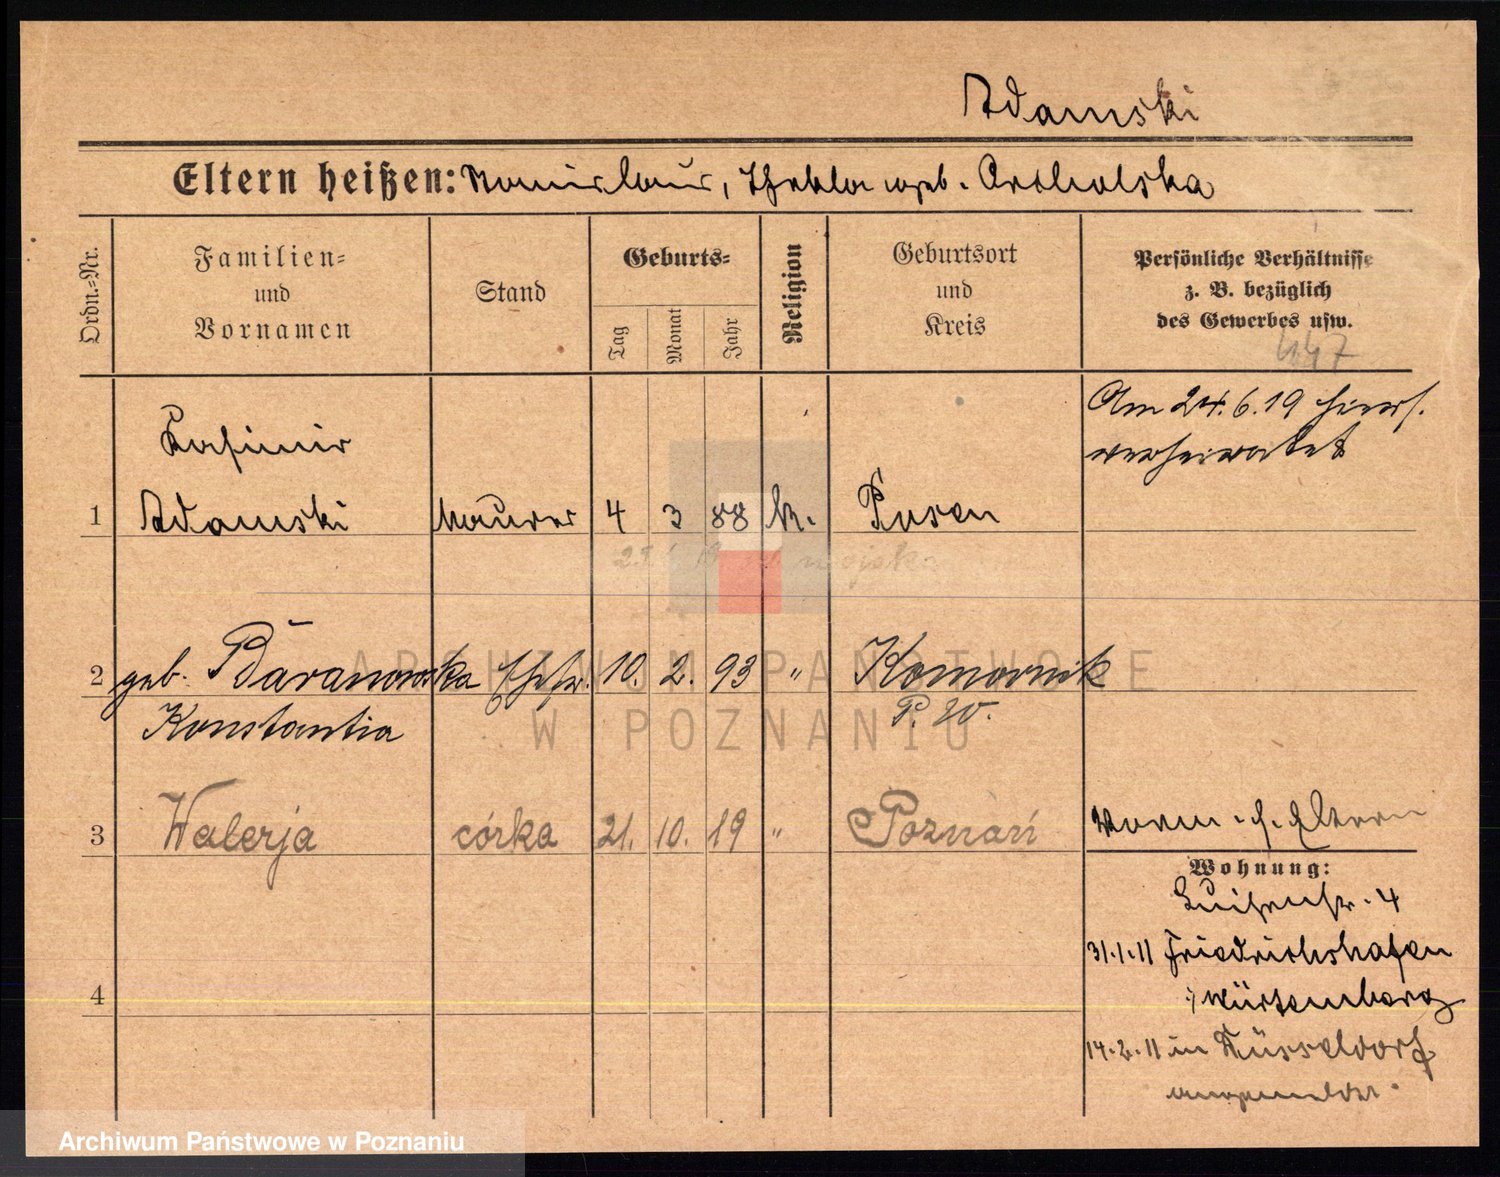 Adamski
Eltern heißen: Stanislaus, Thekla geb. Orcholska
Ordn.-Nr.
Familien-
und
Vornamen
Stand
Geburts-
Tag
Monat
Jahr
Religion
Geburtsort
und
Kreis
Persönliche Verhältnisse
z. B. bezüglich
des Gewerbes usw.
447
Am 24.6.19 hiers.
verheiratet
Kasimir
1 Adamski Maurer 4 3 88 k. Posen
wojska
2 geb. Baranowska Ehefr. 10. 2. 93 " Komornik
Konstantia P. W.
3 Walerja córka 21. 10. 19 " Poznań
Eltern
Wohnung:
Luisenstr. 4
31.1.11 Friedrichshafen
Würtemberg
4
14.2.11 in Düsseldorf
angemeldet.
ARCHIWUM PAŃSTWOWE
W POZNANIU
Archiwum Państwowe w Poznaniu